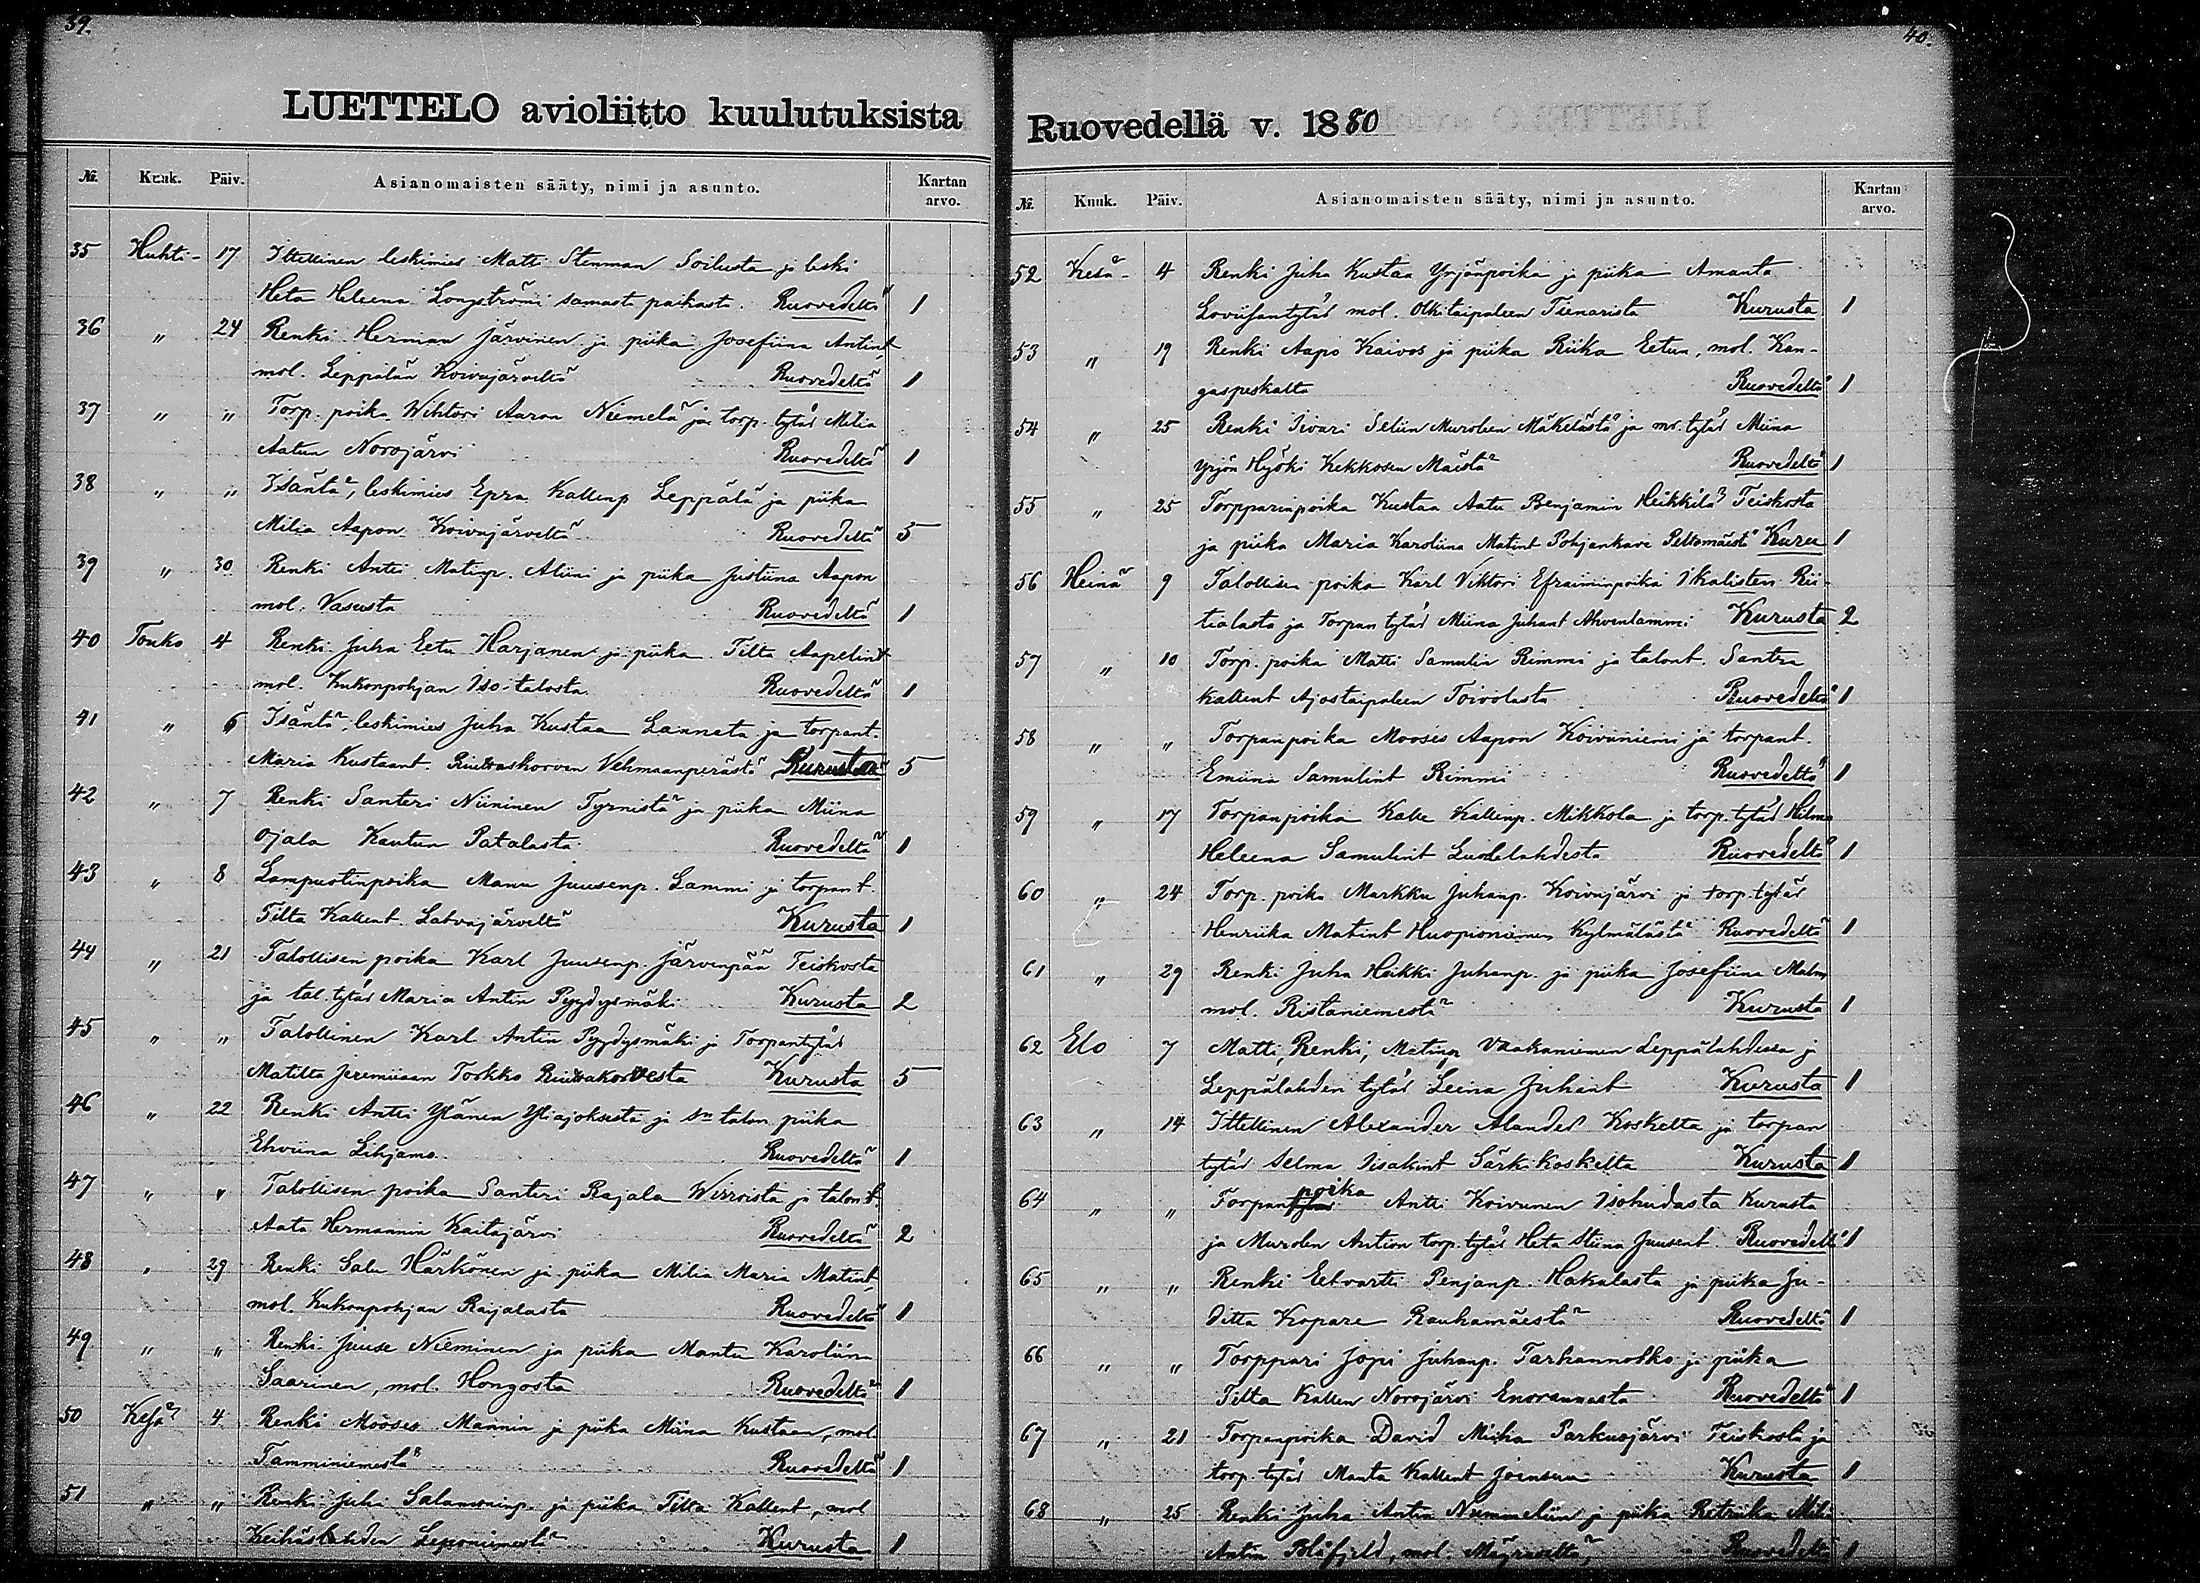 39.
LUETTELO avioliitto kuulutuksista
№. Kuuk. Päiv. Asianomaisten sääty, nimi ja asunto. Kartan arvo.
35 Huhti- 17 Ittellinen leskimies Matti Stenman Soilusta ja leski
Heta Heleena Longströmi samasta paikasta. Ruovedeltä 1
36 " 24 Renki Herman Järvinen ja piika Josefiina Antint
mol. Leppälän Koivujärveltä Ruovedeltä 1
37 " " Torp. poika Wihtori Aaron Niemelä ja torp. tytär Milia
Aatun Norojärvi Ruovedeltä 1
38 " " Isäntä, leskimies Epra Kallenp Leppälä ja piika
Milia Aapon Koivujärveltä Ruovedeltä 5
39 " 30 Renki Antti Matinp. Aliini ja piika Justiina Aapon
mol. Vasusta Ruovedeltä 1
40 Touko 4 Renki Juha Eetu Harjanen ja piika Tilta Aapelint
mol. Kukonpohjan Iso-talosta Ruovedeltä 1
41 " 6 Isäntä, leskimies Juha Kustaa Lanneta ja torpant.
Maria Kustaant. Vehmaanperästä Kurusta 5
42 " 7 Renki Santeri Niininen Tyrnistä ja piika Miina
Ojala Kautun Patalasta Ruovedeltä 1
43 " 8 Lampuotinpoika Manu Juusenp. Lammi ja torpant.
Tilta Kallent. Latvajärveltä Kurusta 1
44 " 21 Talollisen poika Karl Juusenp. Järvenpää Teiskosta
ja tal. tytär Maria Antin Pyydysmäki Kurusta 2
45 " " Talollinen Karl Antin Pyydysmäki ja Torpantytär
Matilta Jeremiiaan Torkko Kurusta 5
46 " 22 Renki Antti Ylänen Yliajoksesta ja sn talon piika
Elviina Lihjamo Ruovedeltä 1
47 " " Talollisen poika Santeri Rajala Wirroista ja talont.
Aata Hermannin Kaitajärvi Ruovedeltä 2
48 " 29 Renki Salu Härkönen ja piika Milia Maria Matint,
mol. Kukonpohjan Raijalasta Ruovedeltä 1
49 " " Renki Juuse Nieminen ja piika Manta Karoliina
Saarinen, mol. Hongosta Ruovedeltä 1
50 Kesä 4 Renki Mooses Mannin ja piika Miina Kustaan, mol
Tamminiemestä Ruovedeltä 1
51 " " Renki Juha Salomoninp. ja piika Tilta Kallent, mol
Keihäslahden Leponiemestä Kurusta 1
40.
Ruovedellä v. 1880
№. Kuuk. Päiv. Asianomaisten sääty, nimi ja asunto. Kartan arvo.
52 Kesä- 4 Renki Juha Kustaa Yrjönpoika ja piika Amanta
Loviisantytär mol. Olkitaipaleen Tienarista Kurusta 1
53 " 19 Renki Aapo Kaivos ja piika Riika Eetun, mol. Kan-
gaspeskalta Ruovedeltä 1
54 " 25 Renki Iivari Seliin Murolen Mäkelästä ja mö. tytär Miina
Yrjön Hyöki Kekkosen Mäistä Ruovedeltä 1
55 " 25 Torpparinpoika Kustaa Aatu Benjamin Heikkilä Teiskosta
ja piika Maria Karoliina Matint Pohjankave Peltomäestä Kuru 1
56 Heinä 9 Talollisen poika Karl Viktori Efraiminpoika Ikalisten Rii-
tialasta ja Torpan tytär Miina Juhant Ahvenlammi Kurusta 2
57 " 10 Torp. poika Matti Samulin Rimmi ja talont. Santra
Kallent Ajostaipaleen Toivolasta Ruovedeltä 1
58 " " Torpanpoika Mooses Aapon Koivuniemi ja torpant.
Emiina Samulint Rimmi Ruovedeltä 1
59 " 17 Torpanpoika Kalle Kallenp. Mikkola ja torp. tytär Hilma
Heleena Samulint Luodelahdesta Ruovedeltä 1
60 " 24 Torp. poika Markku Juhanp. Koivujärvi ja torp. tytär
Henriika Matint Huopionienen Kylmälästä Ruovedeltä 1
61 " 29 Renki Juha Heikki Juhanp. ja piika Josefiina Malm
mol. Ristaniemestä Kurusta 1
62 Elo 7 Matti, Renki, Matinp Vaakaniemen Leppälahdessa ja
Leppälahden tytär Leena Juhant Kurusta 1
63 " 14 Ittellinen Alexander Alander Koskelta ja torpan
tytär Selma Iisakint Särkikoskelta Kurusta 1
64 " " Torpanpoika Antti Koivunen Isohudasta Kurusta
ja Murolen Antion torp. tytär Heta Stiina Juusent Ruovedeltä 1
65 " " Renki Eetvartti Penjanp. Hakalasta ja piika Ju-
ditta Kopare Rauhamäestä Ruovedeltä 1
66 " " Torppari Jopi Juhanp. Tarhannotko ja piika
Tilta Kallen Norojärvi Enorannasta Ruovedeltä 1
67 " 21 Torpanpoika David Miika Parkusjärvi Teiskosta ja
torp. tytär Manta Kallent Joensuu Kurusta 1
68 " 25 Renki Juha Antin Nummeliin ja piika Retriika Milia
Antin Blåfjeld, mol. Ruovedeltä 1